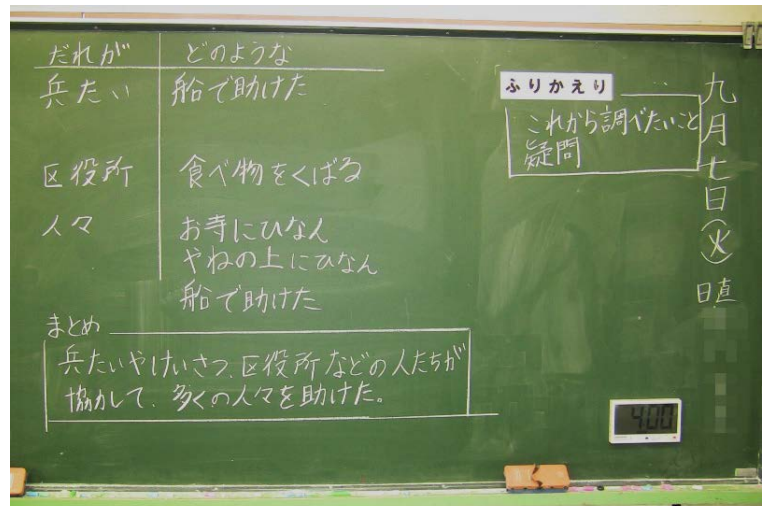 だれが どのような
兵たい 船で助けた
区役所 食べ物をくばる
人々 お寺にひなん
やねの上にひなん
船で助けた
まとめ
兵たいやけいさつ、区役所などの人たちが
協力して、多くの人々を助けた。
ふりかえり
これから調べたいこと
疑問
九月七日(火)
日直
4:00